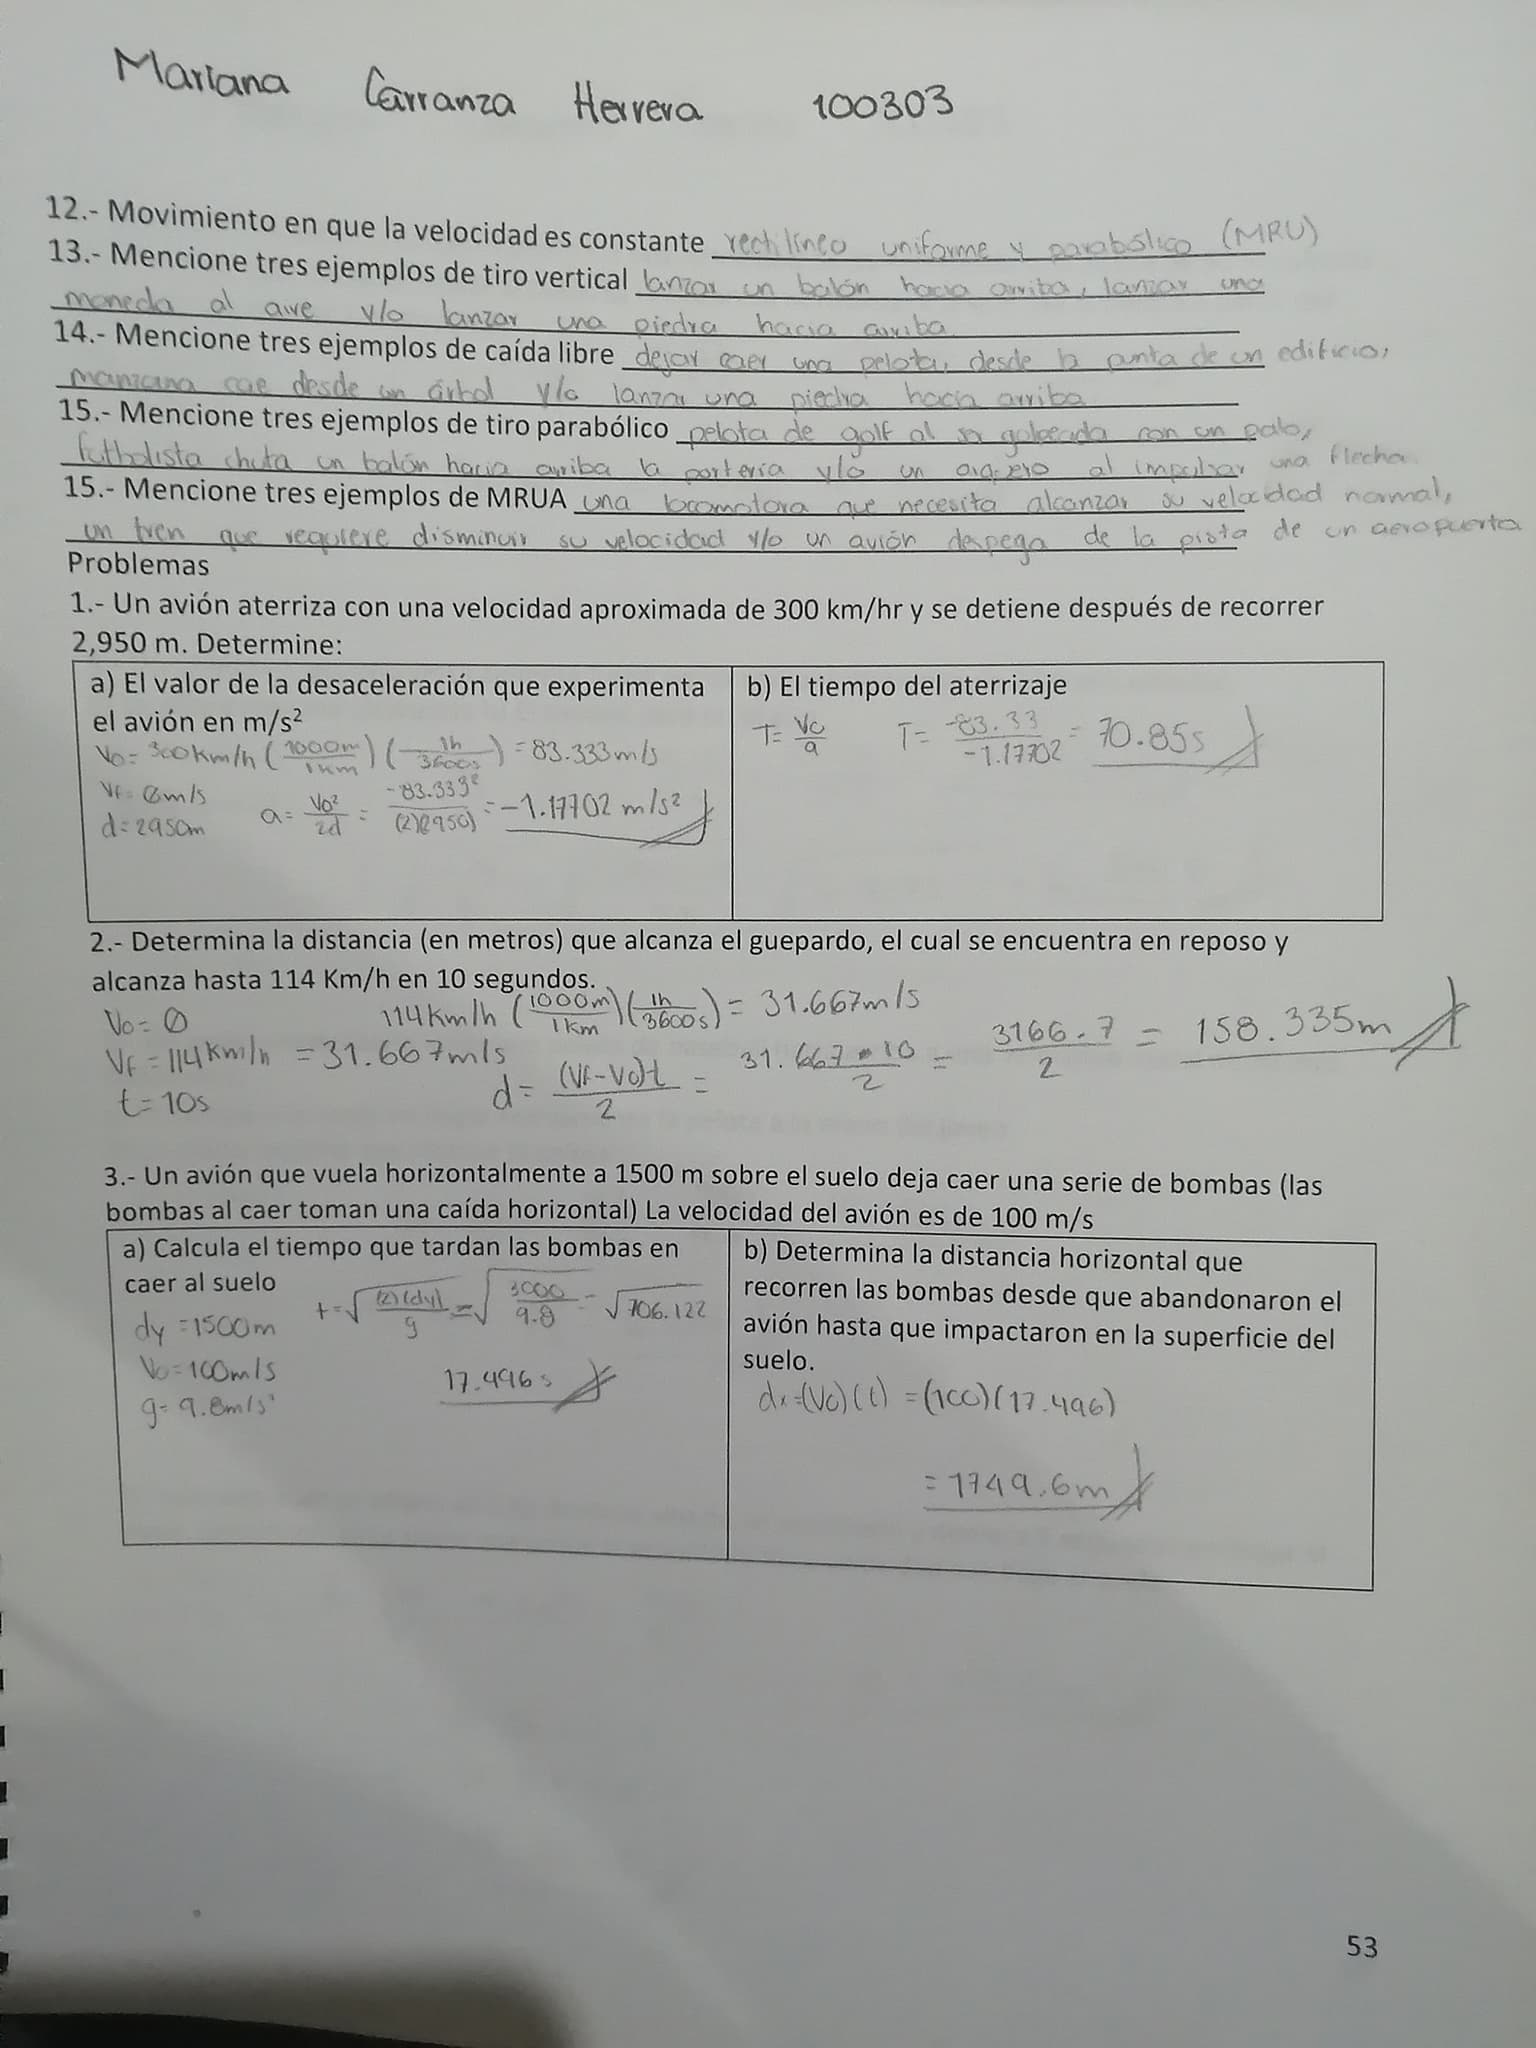 Mariana Carranza Herrera 100303
12.- Movimiento en que la velocidad es constante rectilíneo uniforme y parabólico (MRU)
13.- Mencione tres ejemplos de tiro vertical lanzar un balón hacia arriba, lanzar una
moneda al aire y/o lanzar una piedra hacia arriba
14.- Mencione tres ejemplos de caída libre dejar caer una pelota, desde la punta de un edificio,
manzana cae desde un árbol y/o lanzar una piedra hacia arriba
15.- Mencione tres ejemplos de tiro parabólico pelota de golf al ser golpeada con un palo,
futbolista chuta un balón hacia arriba la portería y/o un arquero al impulsar una flecha.
15.- Mencione tres ejemplos de MRUA una locomotora que necesita alcanzar su velocidad normal,
un tren que requiere disminuir su velocidad y/o un avión despega de la pista de un aeropuerto
Problemas
1.- Un avión aterriza con una velocidad aproximada de 300 km/hr y se detiene después de recorrer
2,950 m. Determine:
a) El valor de la desaceleración que experimenta
el avión en m/s²
Vo= 300km/h (1000m/1km) (1h/3600s) = 83.333m/s
Vf= 0m/s
d= 2950m
a= Vo²/2d = -83.333²/(2)(2950) = -1.17702 m/s²
b) El tiempo del aterrizaje
T= Vo/a T= -83.33/-1.17702 = 70.85s
2.- Determina la distancia (en metros) que alcanza el guepardo, el cual se encuentra en reposo y
alcanza hasta 114 Km/h en 10 segundos.
Vo= 0
114km/h (1000m/1km)(1h/3600s) = 31.667m/s
Vf = 114km/h = 31.667m/s
t= 10s
d= (Vf-Vo)t/2 = 31.667 • 10/2 = 3166.7/2 = 158.335m
3.- Un avión que vuela horizontalmente a 1500 m sobre el suelo deja caer una serie de bombas (las
bombas al caer toman una caída horizontal) La velocidad del avión es de 100 m/s
a) Calcula el tiempo que tardan las bombas en
caer al suelo
dy =1500m
Vo=100m/s
g= 9.8m/s²
t=√(2)(dy)/g = √3000/9.8 = √306.122
17.496s
b) Determina la distancia horizontal que
recorren las bombas desde que abandonaron el
avión hasta que impactaron en la superficie del
suelo.
dx=(Vo)(t) =(100)(17.496)
=1749.6m
53